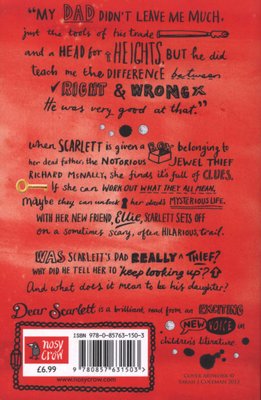 "MY DAD DIDN'T LEAVE ME MUCH,
just the tools of his trade
and a HEAD FOR HEIGHTS. BUT he did
teach me the DIFFERENCE between
RIGHT & WRONG
He was very good at that."
when SCARLETT is given a BOX belonging to
her dead father, the NOTORIOUS JEWEL THIEF
RICHARD MCNALLY, she finds it's full of CLUES.
If she can WORK OUT WHAT THEY ALL MEAN,
maybe they can unlock her dead's MYSTERIOUS LIFE.
WITH HER NEW FRIEND, Ellie, SCARLETT SETS OFF
on a sometimes scary, often HILARIOUS, trail.
WAS SCARLETT'S DAD REALLY A THIEF?
WHY DID HE TELL HER TO "keep looking up"?
And what does it mean to be his daughter?
Dear Scarlett is a brilliant read from an EXCITING
NEW VOICE in
children's literature
nosy
crow
£6.99
www.nosycrow.com
ISBN 978-0-85763-150-3
9 780857 631503 >
COVER ARTWORK ©
SARAH J COLEMAN 2012